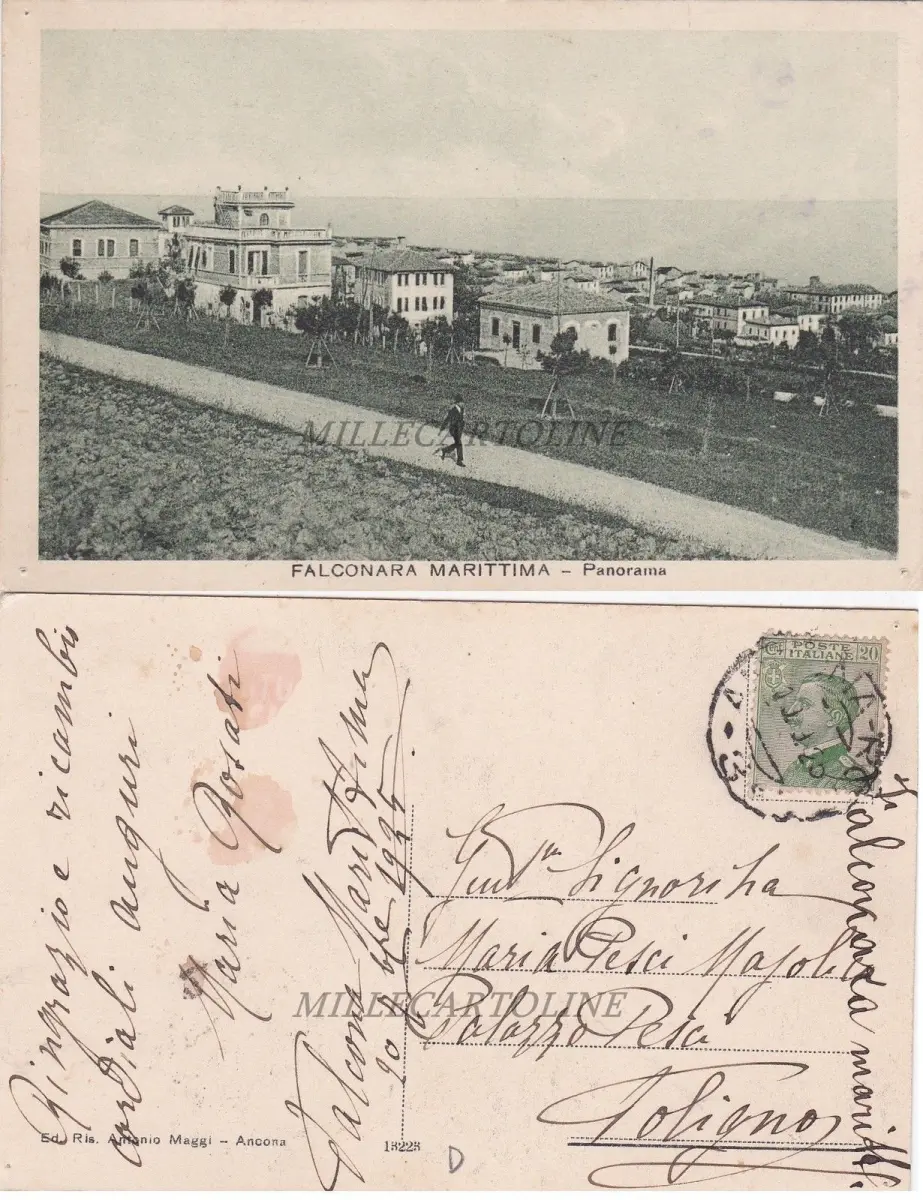 MILLECARTOLINE
FALCONARA MARITTIMA – Panorama
Ringrazio e ricambio
cordiali auguri
Maria Rosati
Falcona Maritt
20 bre 1925
Ed. Ris. Antonio Maggi – Ancona
13223
D
POSTE
ITALIANE
20
Gent.ma Signorina
Maria Pesci Majoli
MILLECARTOLINE
Palazzo Pesci
Foligno
Falconara maritt.